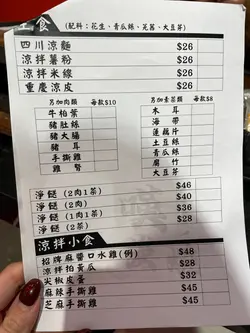 主食 (配料：花生、青瓜絲、芫荽、大豆芽)
四川涼麵 $26
涼拌薯粉 $26
涼拌米線 $26
重慶涼皮 $26
另加肉類 每款$10
牛柏葉
豬肚絲
豬大腸
豬耳
手撕雞
雞腎
另加素菜類 每款$8
木耳
海帶
蓮藕片
土豆絲
青瓜絲
腐竹
大豆芽
淨餸 (2肉1菜) $46
淨餸 (2肉) $40
淨餸 (1肉1菜) $36
淨餸 (2菜) $28
涼拌小食
招牌麻醬口水雞(例) $48
涼拌拍黃瓜 $28
尖椒皮蛋 $32
麻辣手撕雞 $45
芝麻手撕雞 $45